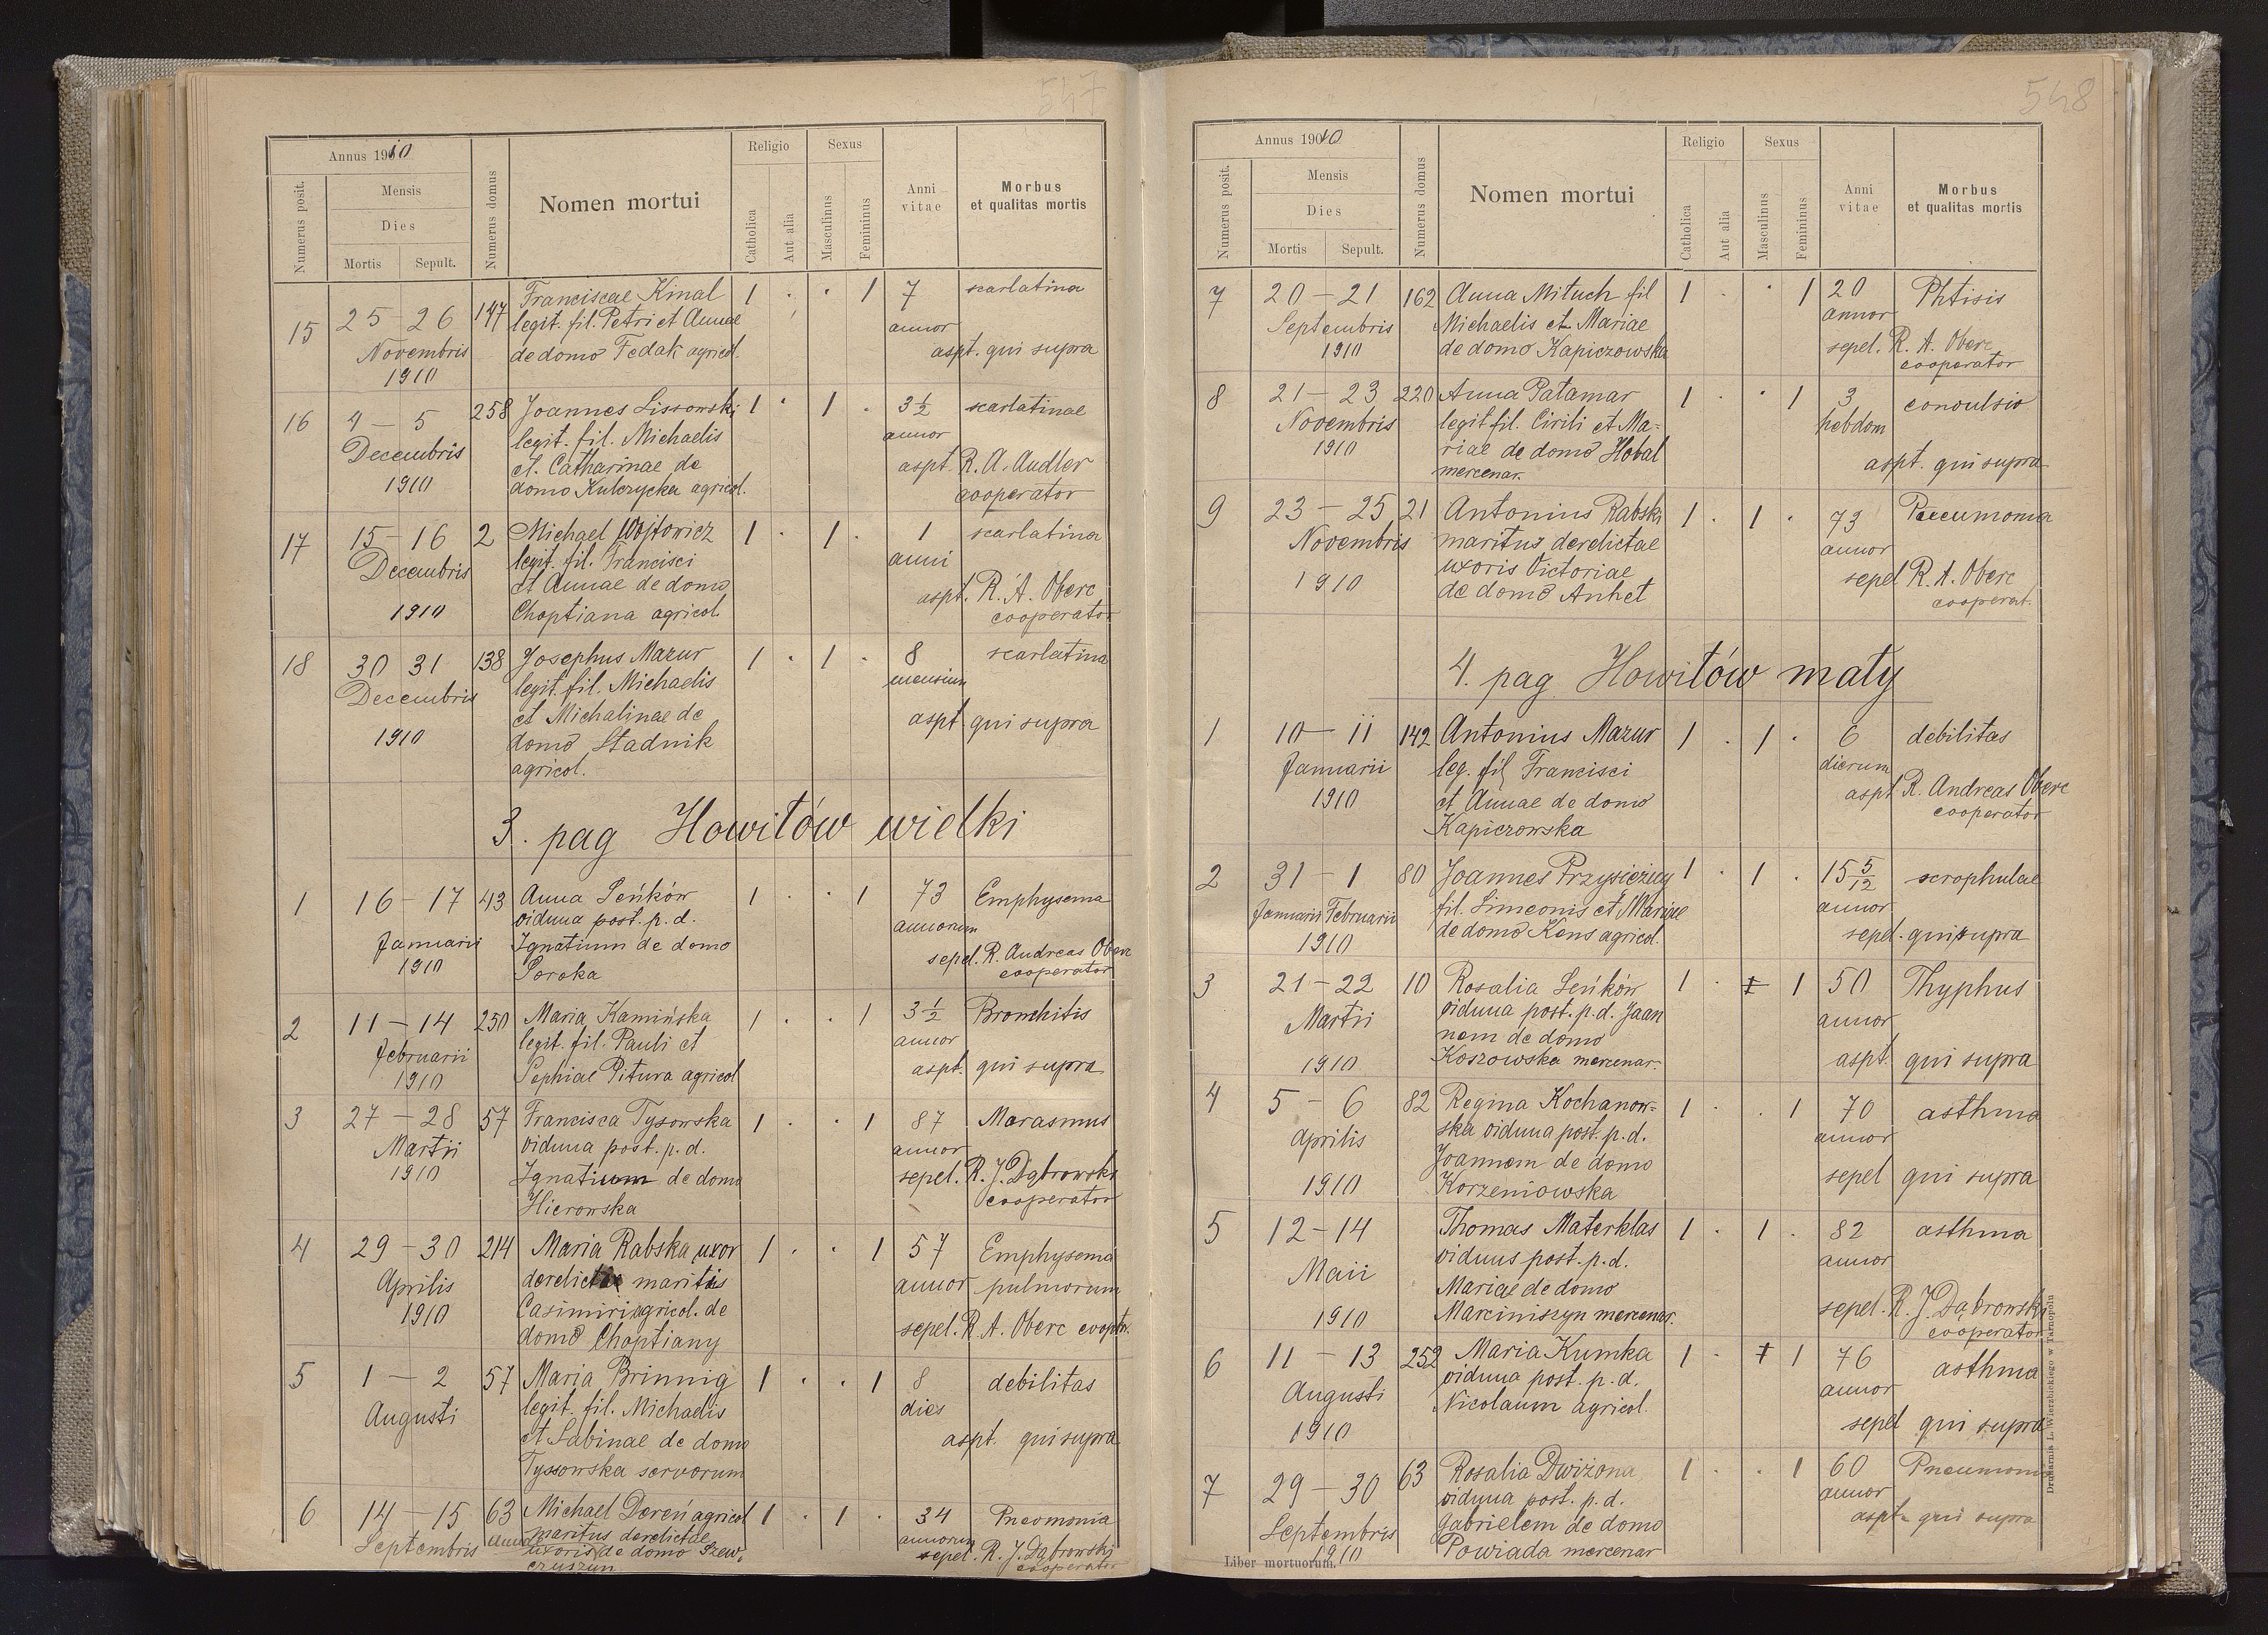 547
Annus 1910
Numerus posit.
Mensis
Dies
Mortis
Sepult.
Numerus domus
Nomen mortui
Religio
Catholica
Aut alia
Sexus
Masculinus
Femininus
Anni vitae
Morbus
et qualitas mortis
15 25 - 26 147 Franciscae Kinal 1 . . 1 7 scarlatina
Novembris legit. fil. Petri et Annae annor
1910 de domo Fedak agricol. aspt. qui supra
16 4 - 5 258 Joannes Lissowski 1 . 1 . 3 1/2 scarlatinae
Decembris legit. fil. Michaelis annor
1910 et. Catharinae de aspt. R. A. Audler
domo Kulczycka agricol. cooperator
17 15 - 16 2 Michael Wojtowicz 1 . 1 . 1 scarlatina
Decembris legit. fil. Francisci anni
et Annae de domo aspt. R. A. Oberc
1910 Choptiana agricol. cooperator
18 30 31 138 Josephus Mazur 1 . 1 . 8 scarlatina
Decembris legit. fil. Michaelis mensium
et Michalinae de aspt. qui supra
1910 domo Stadnik
agricol.
3. pag Howiłów wielki
1 16 - 17 43 Anna Seńków 1 . . 1 73 Emphysema
vidua post. p. d. annorum
Januarii Ignatium de domo sepel. R. Andreas Oberc
1910 Soroka cooperator
2 11 - 14 250 Maria Kamińska 1 . . 1 3 1/2 Bronchitis
Februarii legit. fil. Pauli et annor
1910 Sophiae Pitura agricol aspt. qui supra
3 27 - 28 57 Francisca Tysowska 1 . . 1 87 Marasmus
Martii vidua post. p. d. annor
1910 Ignatium de domo sepel. R. J. Dąbrowski
Hierowska cooperator
4 29 - 30 214 Maria Rabska uxor 1 . . 1 57 Emphysema
Aprilis maritis annor pulmorum
1910 Casimiri agricol. de
domo Choptiany sepel. R. A. Oberc cooptr.
5 1 - 2 57 Maria Brinnig 1 . . 1 8 debilitas
Augusti legit. fil. Michaelis dies
et Sabinae de domo aspt. qui supra
Tyssowska servorum
6 14 - 15 63 Michael Dereń agricol 1 . 1 . 34 Pneomonia
Septembris maritus derelictae annorum
Anna uxoris de domo Szew- sepel. R. J. Dąbrowski
czyszyn cooperator
548
Annus 1910
Numerus posit.
Mensis
Dies
Mortis
Sepult.
Numerus domus
Nomen mortui
Religio
Catholica
Aut alia
Sexus
Masculinus
Femininus
Anni vitae
Morbus
et qualitas mortis
7 20 - 21 162 Anna Mituch fil 1 . . 1 20 Phtisis
Septembris Michaelis et Mariae annor
1910 de domo Kapiczowska sepel. R. A. Oberc
cooperator
8 21 - 23 220 Anna Patamar 1 . . 1 3 convulsio
Novembris legit fil. Cirili et Ma- hebdom
1910 riae de domo Hobal aspt. qui supra
mercenar.
9 23 - 25 21 Antonius Rabski 1 . 1 . 73 Pneumonia
Novembris maritus derelictae annor
uxoris Victoriae sepel R. A. Oberc
1910 de domo Anhet cooperat.
4. pag Howiłów mały
1 10 - 11 142 Antonius Mazur 1 . 1 . 6 debilitas
Januarii leg. fil Francisci dierum
1910 et Annae de domo aspt R. Andreas Oberc
Kapiczowska cooperator
2 31 - 1 80 Joannes Przysiężny 1 . 1 . 15 5/12 scrophulae
Januarii Februarii fil. Simeonis et Mariae annor
1910 de domo Kens agricol. sepel. qui supra
3 21 - 22 10 Rosalia Seńków 1 . 1 50 Thyphus
Martii vidua post. p. d. Joan annor
nem de domo
1910 Koszowska mercenar. aspt. qui supra
4 5 - 6 82 Regina Kochanow- 1 . . 1 70 asthma
Aprilis ska vidua post. p. d. annor
Joannem de domo
1910 Korzeniowska sepel qui supra
5 12 - 14 Thomas Materklas 1 . 1 . 82 asthma
Maii viduus post. p. d. annor
Mariae de domo sepel. R. J. Dąbrowski
1910 Marciniszyn mercenar. cooperator
6 11 - 13 252 Maria Kumka 1 . 1 76 asthma
Augusti vidua post. p. d. annor
1910 Nicolaum agricol. sepel qui supra
7 29 - 30 63 Rosalia Dwiżona 1 . . 1 60 Pneumonia
vidua post. p. d. annor
Septembris Gabrielem de domo aspt. qui supra
1910 Powiada mercenar
Liber mortuorum.
Drukarnia L. Wierzbickiego w Tarnopolu